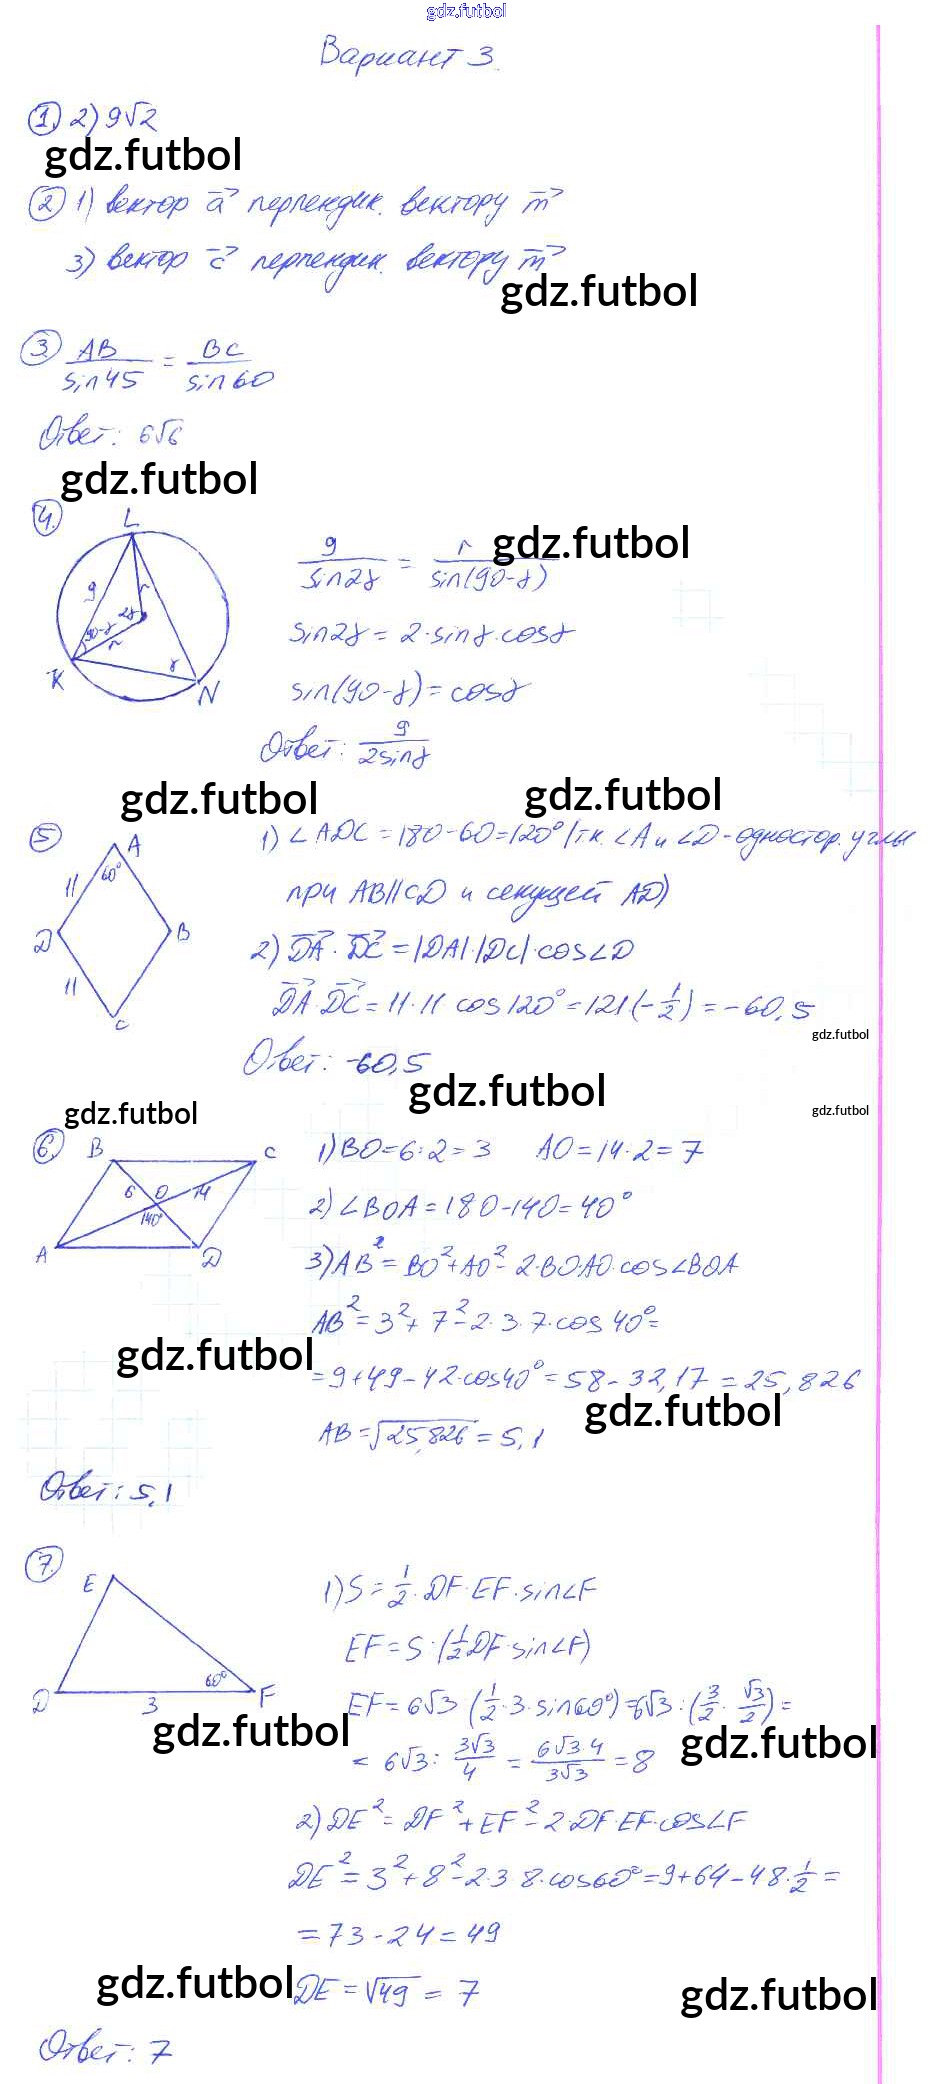 gdz.futbol
Вариант 3.
1. 2) 9√2
gdz.futbol
2. 1) вектор a⃗ перпендик. вектору m⃗
3) вектор c⃗ перпендик. вектору m⃗
gdz.futbol
3. AB/sin45 = BC/sin60
Ответ: 6√6
gdz.futbol
4.
L
g
r
2γ
90-γ
r
γ
K
N
g/sin2γ = r/sin(90-γ)
gdz.futbol
sin2γ = 2·sinγ·cosγ
sin(90-γ) = cosγ
Ответ: g/2sinγ
gdz.futbol
gdz.futbol
5
A
60°
11
D
B
11
C
1) ∠ADC = 180-60=120° (т.к. ∠A и ∠D - одностор. углы
при AB||CD и секущей AD)
2) DA⃗ · DC⃗ = |DA|·|DC|·cos∠D
DA⃗·DC⃗ = 11·11 cos120° = 121(-1/2) = -60,5
gdz.futbol
Ответ: -60,5
gdz.futbol
gdz.futbol
gdz.futbol
6.
B
C
6
O
14
140°
A
D
1) BO=6:2=3 AO=14·2=7
2) ∠BOA = 180-140=40°
3) AB²=BO²+AO²-2·BO·AO·cos∠BOA
AB²=3²+7²-2·3·7·cos40°=
gdz.futbol
=9+49-42·cos40°=58-32,17=25,826
gdz.futbol
AB=√25,826=5,1
Ответ: 5,1
7.
E
60°
D
3
F
1) S=1/2·DF·EF·sin∠F
EF=S:(1/2DF·sin∠F)
EF=6√3:(1/2·3·sin60°)=6√3:(3/2·√3/2)=
gdz.futbol
gdz.futbol
= 6√3: 3√3/4 = 6√3·4/3√3 = 8
2) DE²=DF²+EF²-2·DF·EF·cos∠F
DE²=3²+8²-2·3·8·cos60°=9+64-48·1/2=
=73-24=49
gdz.futbol
DE=√49 = 7
gdz.futbol
Ответ: 7